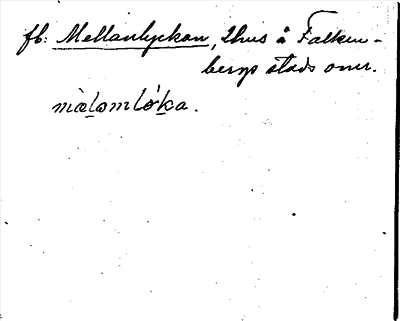 fb: Mellanlyckan, 2hus å Falken-
bergs stads omr.
mælømløka.